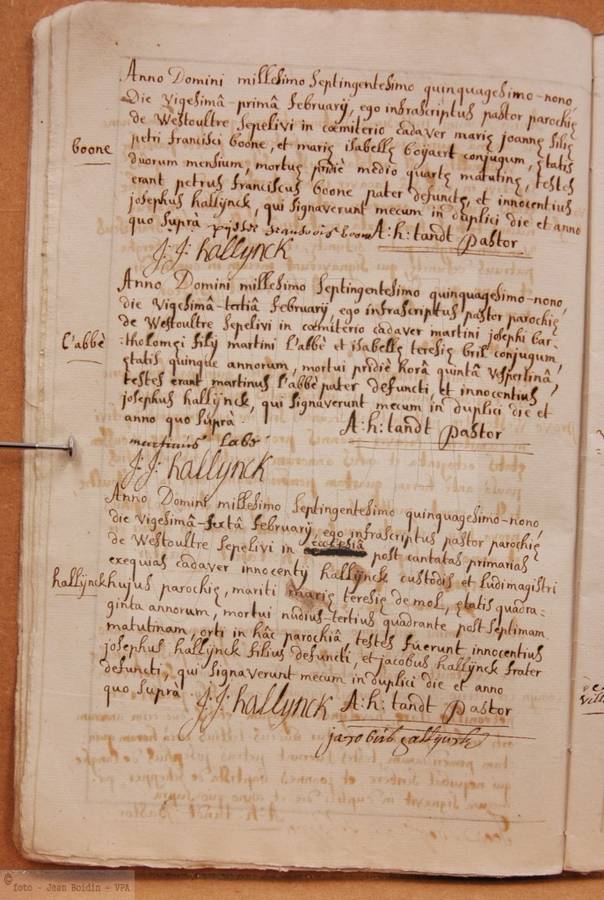 Anno Domini millesimo septingentesimo quinquagesimo-nono,
Die vigesimâ-primâ februarij, ego infrascriptus pastor parochię
de Westoultre sepelivi in cœmiterio cadaver marię joannę filię
boone
petri francisci boone, et marię isabellę boÿaert conjugum, ętatis
duorum mensium, mortuę pridiè medio quartę matutinę, testes
erant petrus franciscus boone pater defunctę, et innocentius
josephus hallÿnck, qui signaverunt mecum in duplici die et anno
quo suprà
boone A: h: tandt pastor
J: J: hallÿnck
Anno Domini millesimo septingentesimo quinquagesimo-nono,
die vigesimâ-tertiâ februarij, ego infrascriptus pastor parochię
de Westoultre sepelivi in cœmiterio cadaver martini josephi bar-
l'abbè
:tholomęi filij martini l'abbè et isabellę teresię bril conjugum,
ętatis quinque annorum, mortui pridiè horâ quintâ vespertinâ,
testes erant martinus l'abbè pater defuncti, et innocentius
josephus hallÿnck, qui signaverunt mecum in duplici die et
anno quo suprà.
A: h: tandt pastor
martinus labe
J: J: hallÿnck
Anno Domini millesimo septingentesimo quinquagesimo-nono,
die vigesimâ-sextâ februarij, ego infrascriptus pastor parochię
de Westoultre sepelivi in ecclesiâ post cantatas primarias
exequias cadaver innocentij hallÿnck custodis et ludimagistri
hallÿnck
hujus parochię, mariti marię teresię de mol, ętatis quadra:
ginta annorum, mortui nudius-tertius quadrante post septimam
matutinam, orti in hâc parochiâ testes fuerunt innocentius
josephus hallÿnck filius defuncti, et jacobus hallÿnck frater
defuncti, qui signaverunt mecum in duplici die et anno
quo suprà.
J: J: hallÿnck A: h: tandt pastor
© foto - Jean Boidin - VPA